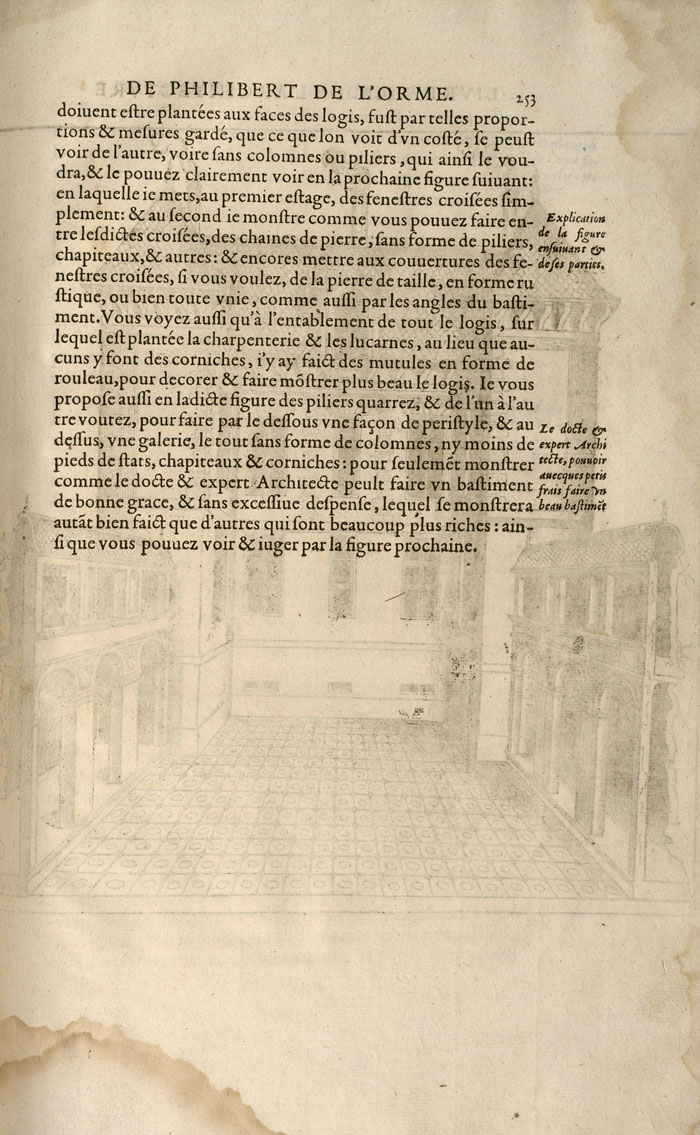 DE PHILIBERT DE L'ORME. 253
doiuent eſtre plantées aux faces des logis, fuſt par telles propor-
tions & meſures gardé, que ce que lon voit d'vn coſté, ſe peuſt
voir de l'autre, voire ſans colomnes ou piliers, qui ainſi le vou-
dra, & le pouuez clairement voir en la prochaine figure ſuiuant:
en laquelle ie mets, au premier eſtage, des feneſtres croiſées ſim-
plement: & au ſecond ie monſtre comme vous pouuez faire en-
tre leſdictes croiſées, des chaines de pierre, ſans forme de piliers,
chapiteaux, & autres: & encores mettre aux couuertures des fe-
neſtres croiſées, ſi vous voulez, de la pierre de taille, en forme ru
ſtique, ou bien toute vnie, comme auſſi par les angles du baſti-
ment. Vous voyez auſſi qu'à l'entablement de tout le logis, ſur
lequel eſt plantée la charpenterie & les lucarnes, au lieu que au-
cuns y font des corniches, i'y ay faict des mutules en forme de
rouleau, pour decorer & faire mõſtrer plus beau le logis. Ie vous
propoſe auſſi en ladicte figure des piliers quarrez, & de l'un à l'au
tre voutez, pour faire par le deſſous vne façon de periſtyle, & au
deſſus, vne galerie, le tout ſans forme de colomnes, ny moins de
pieds de ſtats, chapiteaux & corniches: pour ſeulemẽt monſtrer
comme le docte & expert Architecte peult faire vn baſtiment
de bonne grace, & ſans exceſſiue deſpenſe, lequel ſe monſtrera
autãt bien faict que d'autres qui ſont beaucoup plus riches: ain-
ſi que vous pouuez voir & iuger par la figure prochaine.
Explication
de la figure
enſuiuant &
de ſes parties.
Le docte &
expert Archi
tecte, pouuoir
auecques petis
frais faire vn
beau baſtimẽt